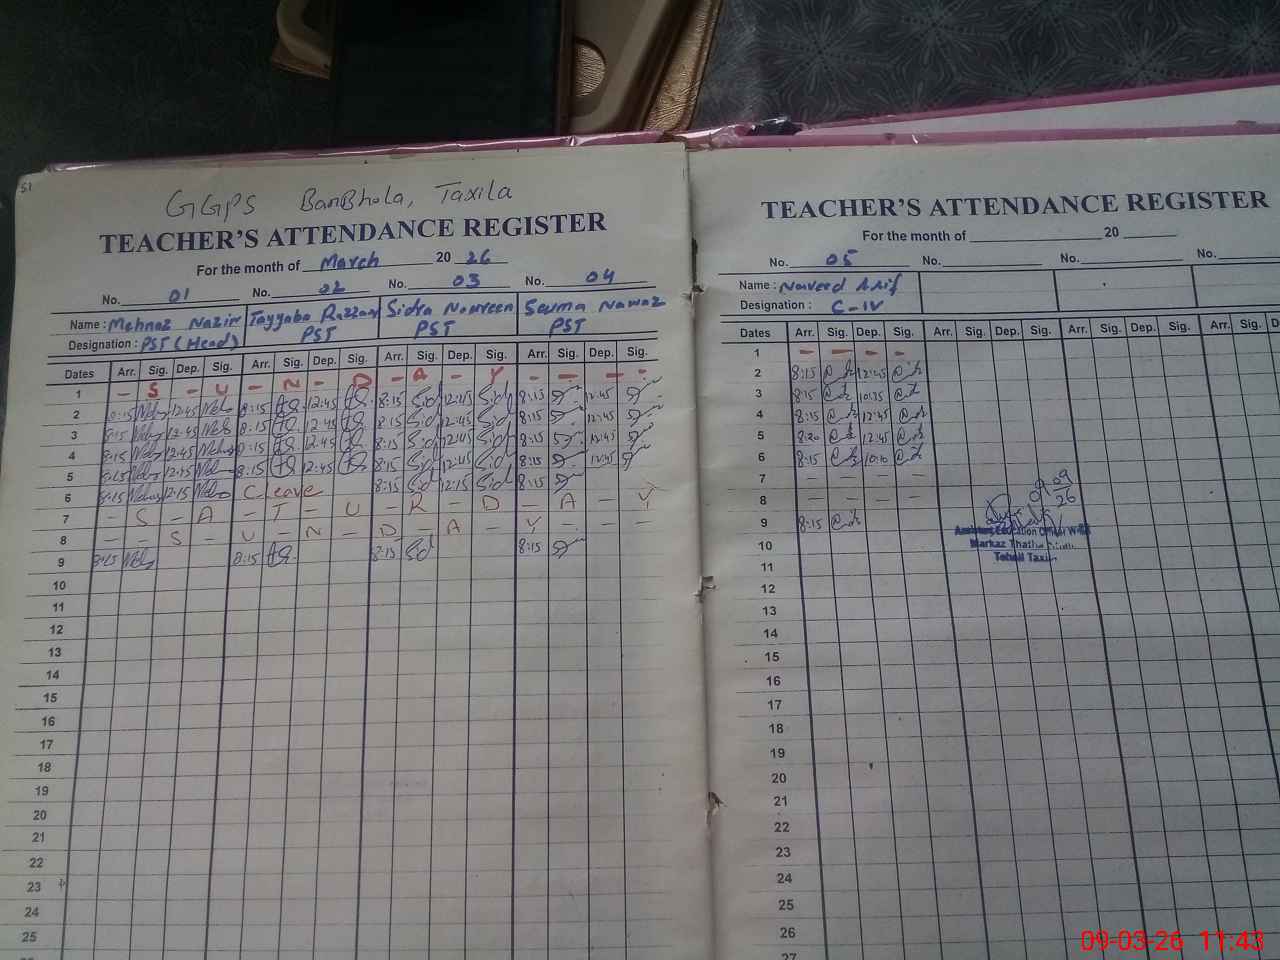 51
GGPS BanBhola, Taxila
TEACHER'S ATTENDANCE REGISTER
For the month of March 20 26
No. 01 No. 02 No. 03 No. 04
Name : Mehnaz Nazir Tayyaba Razzaq Sidra Nowreen Sauma Nawaz
Designation : PST (Head) PST PST PST
Dates Arr. Sig. Dep. Sig. Arr. Sig. Dep. Sig. Arr. Sig. Dep. Sig. Arr. Sig. Dep. Sig.
1 – S – U – N – D – A – Y – – – –
2 8:15 12:45 8:15 12:45 8:15 Sid 12:45 Sid 8:15 12:45
3 8:15 12:45 8:15 12:45 8:15 Sid 12:45 Sid 8:15 12:45
4 8:15 12:45 8:15 12:45 8:15 Sid 12:45 Sid 8:15 12:45
5 8:15 12:45 8:15 12:45 8:15 Sid 12:45 Sid 8:15 12:45
6 8:15 12:15 C leave 8:15 Sid 12:15 Sid 8:15
7 – S – A – T – U – R – D – A – Y
8 – – S – U – N – D – A – Y – – –
9 8:15 8:15 8:15 Sid 8:15
10
11
12
13
14
15
16
17
18
19
20
21
22
23
24
25
TEACHER'S ATTENDANCE REGISTER
For the month of 20
No. 05 No. No. No.
Name : Naveed Arif
Designation : C-IV
Dates Arr. Sig. Dep. Sig. Arr. Sig. Dep. Sig. Arr. Sig. Dep. Sig. Arr. Sig.
1 – – – –
2 8:15 12:45
3 8:15 10:35
4 8:15 12:45
5 8:20 12:45
6 8:15 10:10
7 – – – –
8 – – – –
9 8:15
09
26
Assistant Education Officer
Markaz Thatha
Tehsil Taxila
10
11
12
13
14
15
16
17
18
19
20
21
22
23
24
25
26
27
09-03-26 11:43